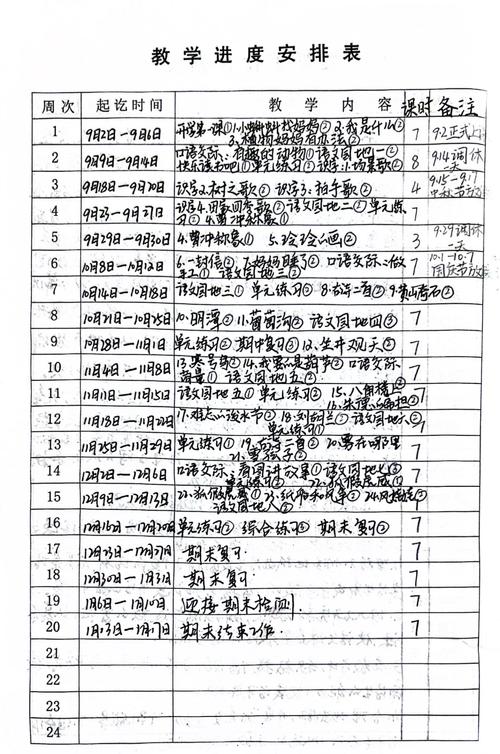 教学进度安排表
周次 起讫时间 教学内容 课时 备注
1 9月2日—9月6日 开学第一课① 1.小蝌蚪找妈妈② 2.我是什么② 3.植物妈妈有办法② 7 9.2正式上课
2 9月9日—9月14日 口语交际：有趣的动物① 语文园地一② 快乐读书吧① 单元练习② 识字1.场景歌② 8 9.14调休一天
3 9月18日—9月20日 识字2.树之歌② 识字3.拍手歌② 4 9.15-9.17
4 9月23—9月27日 识字4.田家四季歌② 语文园地二② 单元练② 4.曹冲称象① 7
5 9月29日—9月30日 4.曹冲称象① 5.玲玲的画② 3 9.29调休一天
6 10月8日—10月12日 6.一封信② 7.妈妈睡了② 口语交际：做手工① 语文园地三① 7 10.1-10.7 国庆节放
7 10月14日—10月18日 语文园地三① 单元练习② 8.古诗二首② 9.黄山奇石② 7
8 10月21日—10月25日 10.日月潭② 11.葡萄沟② 语文园地四③ 7
9 10月28日—11月1日 单元练习② 期中复习③ 12.坐井观天② 7
10 11月4日—11月8日 13.寒号鸟② 14.我要的是葫芦② 口语交际：商量① 语文园地五② 7
11 11月11日—11月15日 语文园地五① 单元练习② 15.八角楼上② 16.朱德的扁担② 7
12 11月18日—11月22日 17.难忘的泼水节② 18.刘胡兰② 语文园地六② 单元练习① 7
13 11月25日—11月29日 单元练习① 19.古诗二首② 20.雾在哪里② 21.雪孩子② 7
14 12月2日—12月6日 口语交际：看图讲故事① 语文园地七② 单元练习② 22.狐假虎威② 7
15 12月9日—12月13日 22.狐假虎威① 23.纸船和风筝② 24.风娃娃② 语文园地八② 7
16 12月16日—12月20日 单元练习② 综合练习② 期末复习③ 7
17 12月23日—12月27日 期末复习 7
18 12月30日—1月3日 期末复习 7
19 1月6日—1月10日 迎接期末检测 7
20 1月13日—1月17日 期末结束工作 7
21
22
23
24